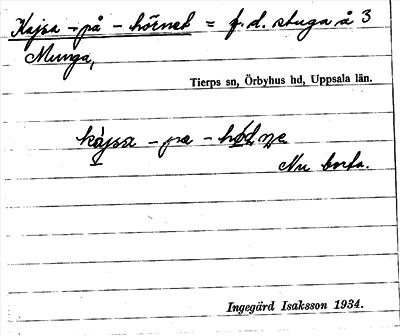 Kajsa - på - hörnet = f. d. stuga å 3
Munga,
Tierps sn, Örbyhus hd, Uppsala län.
kájsa - pa -
Nu borta.
Ingegärd Isaksson 1934.